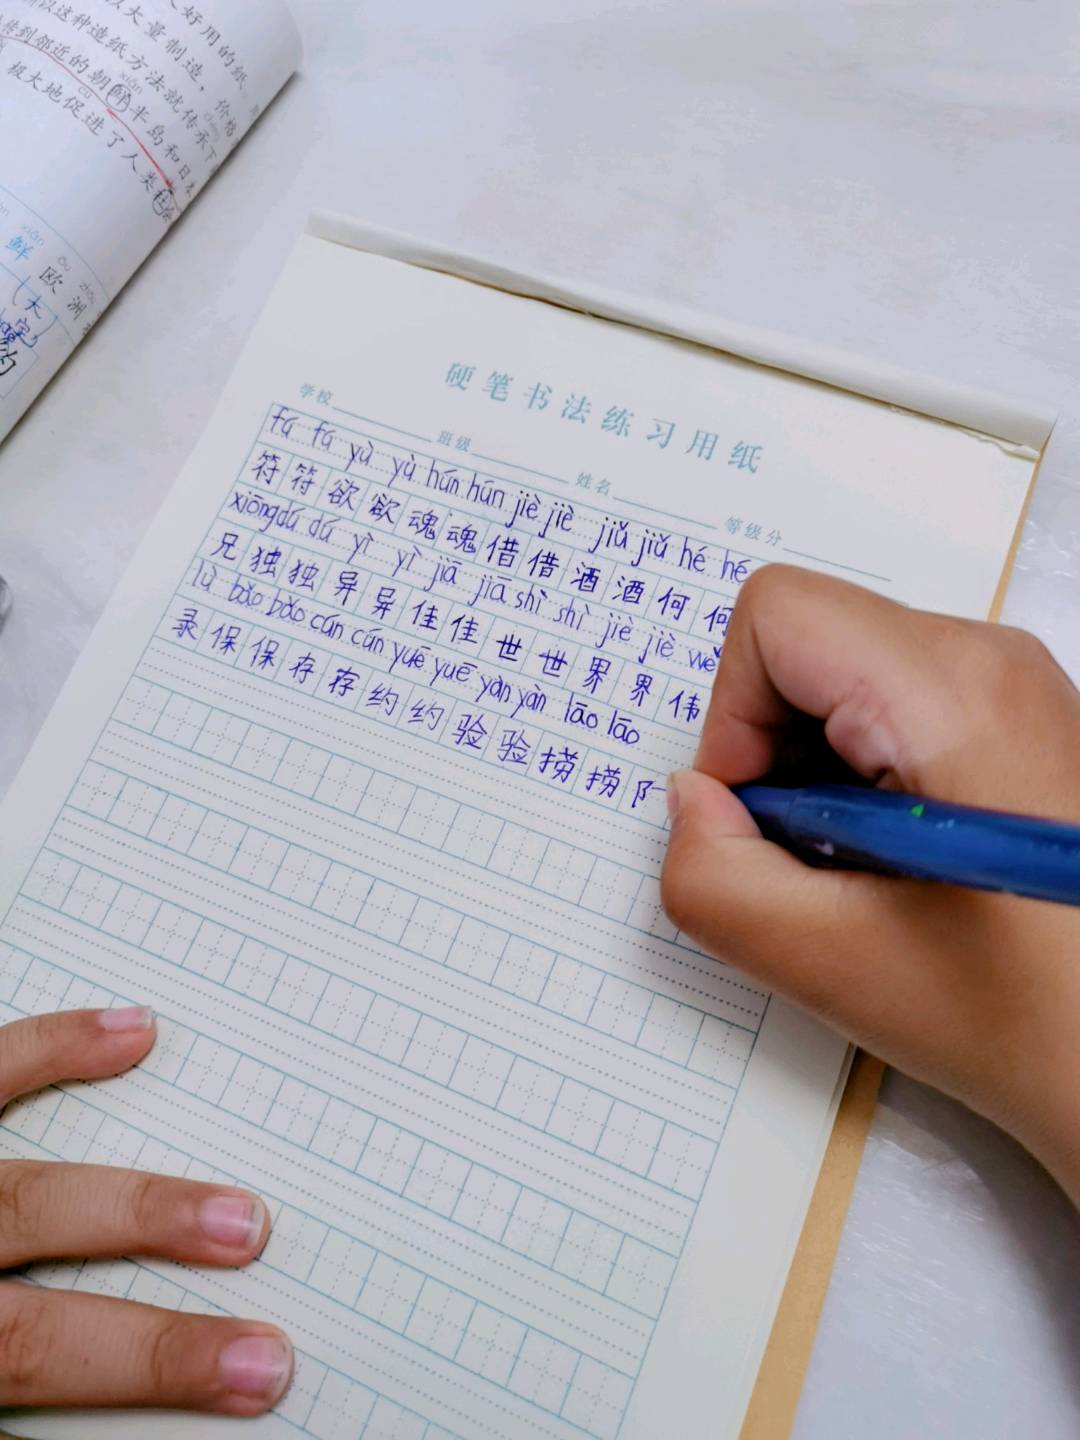 好用的纸
以大量制造，价格
所以这种造纸方法就传承下
传到邻近的朝鲜半岛和日
xiān
极大地促进了人类社会
cù
xiān ōu zhōu
鲜 欧 洲
硬笔书法练习用纸
学校 班级 姓名 等级分
fú fú yù yù hún hún jiè jiè jiǔ jiǔ hé hé
符 符 欲 欲 魂 魂 借 借 酒 酒 何 何
xiōng dú dú yì yì jiā jiā shì shì jiè jiè wě
兄 独 独 异 异 佳 佳 世 世 界 界 伟
lù bǎo bǎo cún cún yuē yuē yàn yàn lāo lāo
录 保 保 存 存 约 约 验 验 捞 捞